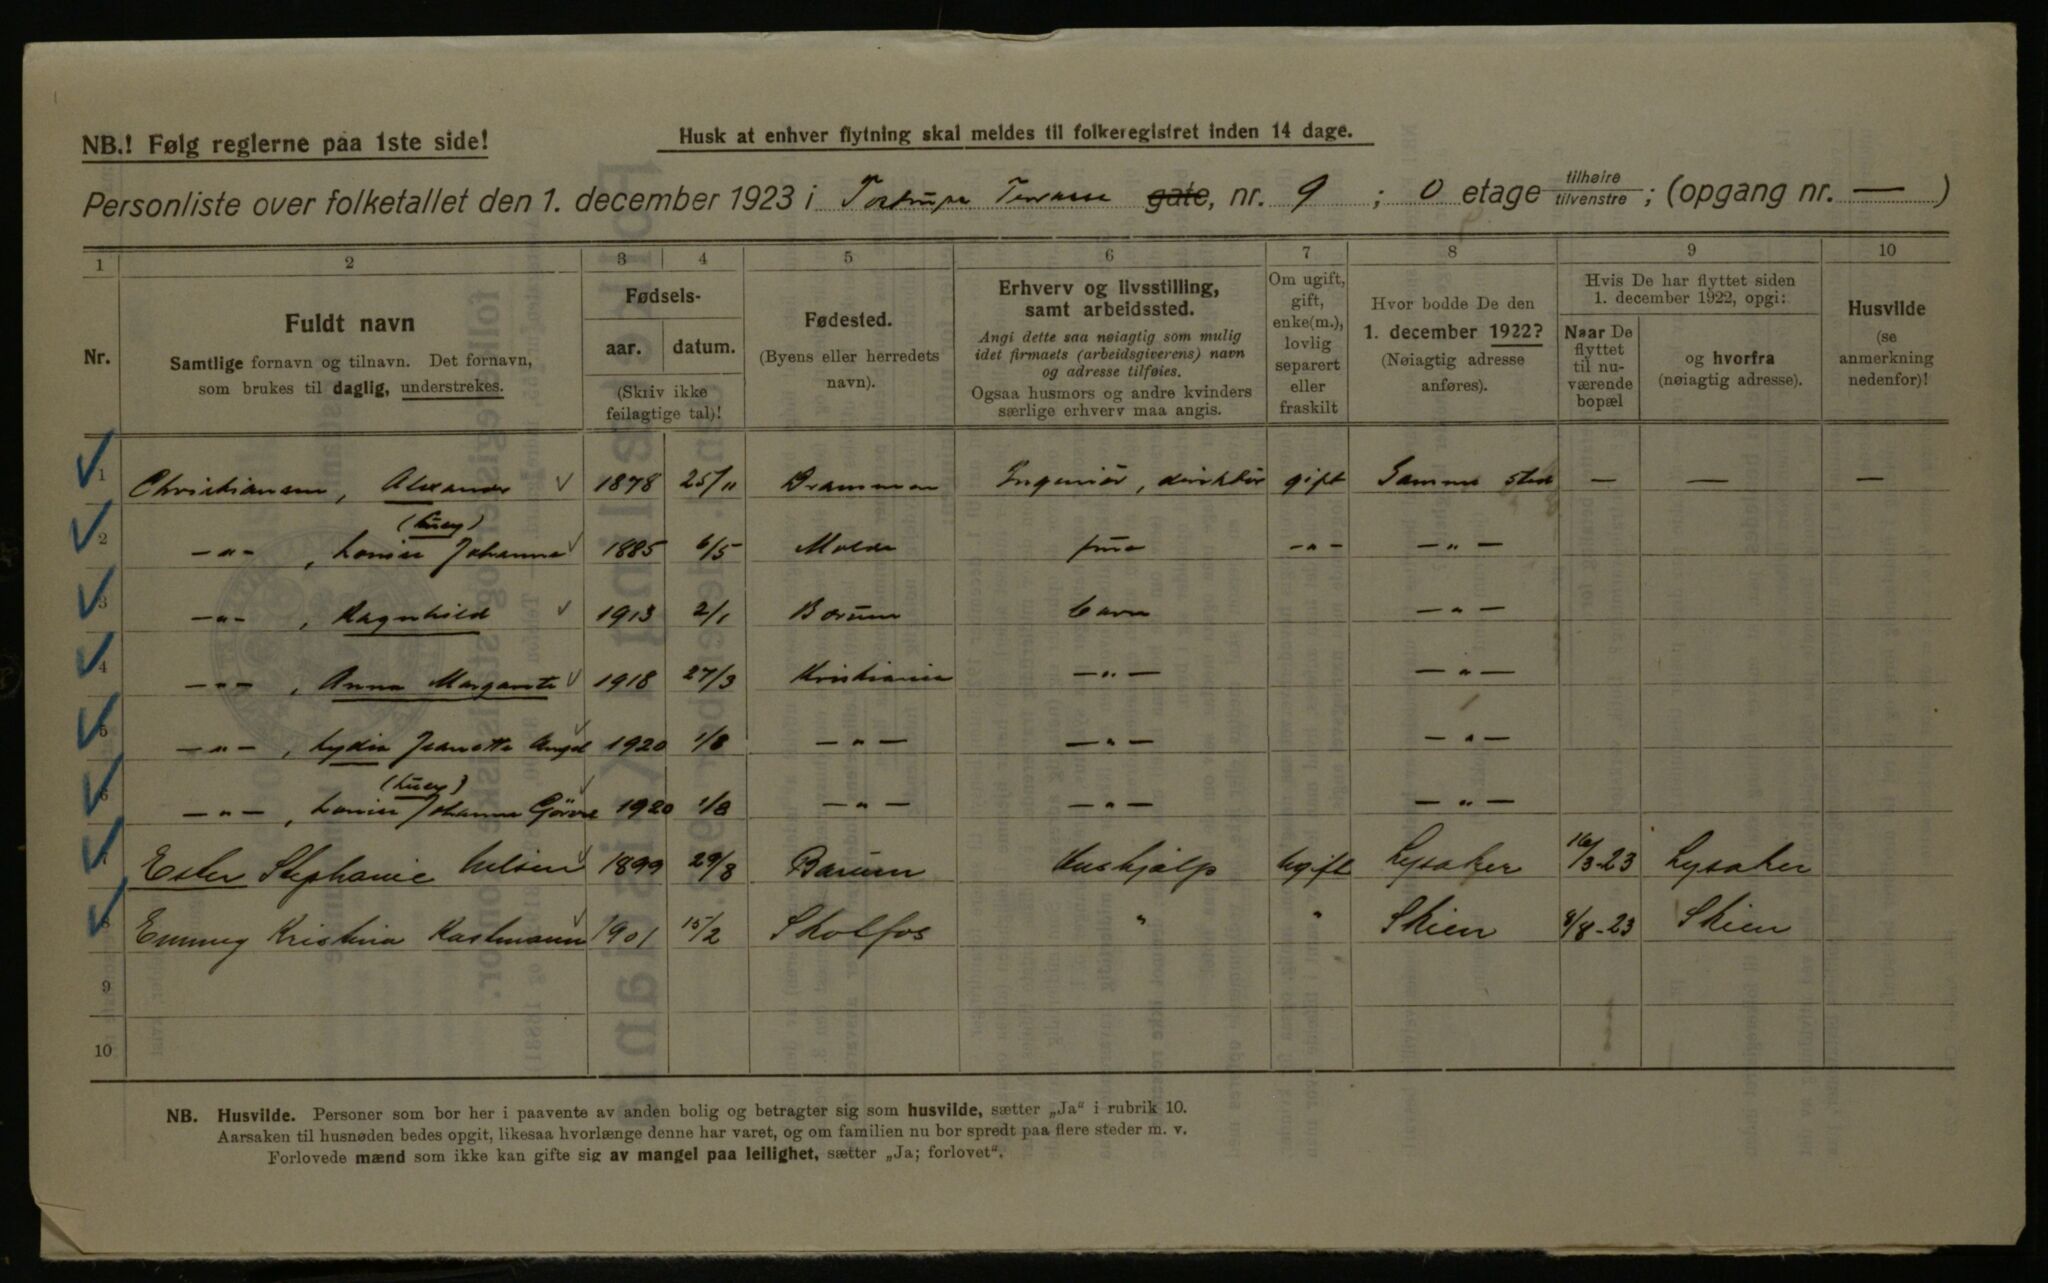 NB.! Følg reglerne paa 1ste side!
Husk at enhver flytning skal meldes til folkeregistret inden 14 dage.
Personliste over folketallet den 1. december 1923 i Tostrups Terrasse gate, nr. 9 ; 0 etage tilhøire tilvenstre ; (opgang nr. — )
1 2 3 4 5 6 7 8 9 10
Nr.
Fuldt navn
Samtlige fornavn og tilnavn. Det fornavn,
som brukes til daglig, understrekes.
Fødsels-
aar. datum.
(Skriv ikke
feilagtige tal)!
Fødested.
(Byens eller herredets
navn).
Erhverv og livsstilling,
samt arbeidssted.
Angi dette saa nøiagtig som mulig
idet firmaets (arbeidsgiverens) navn
og adresse tilføies.
Ogsaa husmors og andre kvinders
særlige erhverv maa angis.
Om ugift,
gift,
enke(m.),
lovlig
separert
eller
fraskilt
Hvor bodde De den
1. december 1922?
(Nøiagtig adresse
anføres).
Hvis De har flyttet siden
1. december 1922, opgi:
Naar De
flyttet
til nu-
værende
bopæl
og hvorfra
(nøiagtig adresse).
Husvilde
(se
anmerkning
nedenfor)!
1 Christiansen, Alexander 1878 25/11 Drammen Ingeniör, direktör gift Samme sted — — —
(Lucy)
2 —"— , Louise Johanne 1885 6/5 Molde frue —"— —"—
3 —"— , Ragnhild 1913 2/1 Bærum barn —"—
4 —"— , Anna Margarete 1918 27/3 Kristiania —"— —"—
5 —"— , Lydia Jeanette 1920 1/8 —"— —"— —"—
(Lucy)
6 —"— , Louise Johanne 1920 1/8 —"— —"— —"—
7 Ester Stephanie Nilsen 1899 29/8 Bærum Hushjælp ugift Lysaker 16/3-23 Lysaker
8 Emmy Kristina Kastmann 1901 15/2 Skotfos " " Skien 8/8-23 Skien
9
10
NB. Husvilde. Personer som bor her i paavente av anden bolig og betragter sig som husvilde, sætter „Ja" i rubrik 10.
Aarsaken til husnøden bedes opgit, likesaa hvorlænge denne har varet, og om familien nu bor spredt paa flere steder m. v.
Forlovede mænd som ikke kan gifte sig av mangel paa leilighet, sætter „Ja; forlovet".